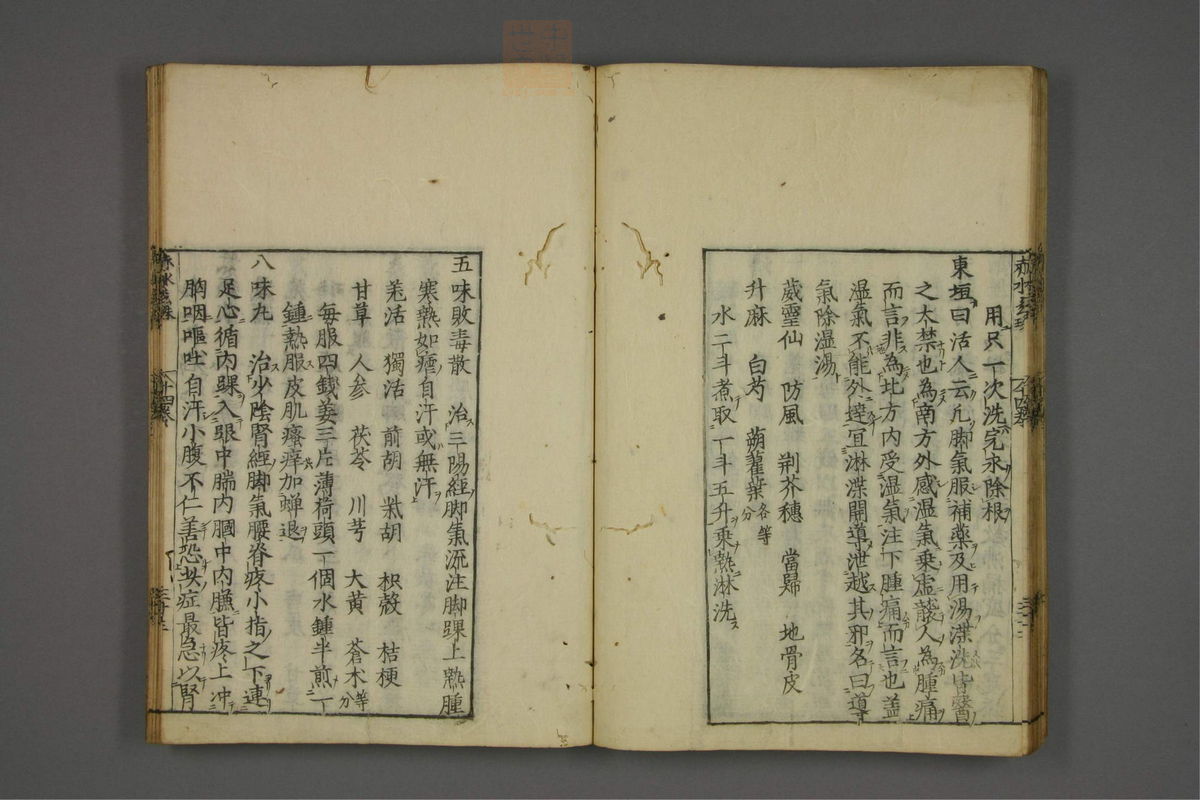 用只一次洗完永除根
東垣曰活人云凡脚氣服補藥及用湯渫洗皆醫
之大禁也為南方外感湿氣乗虚襲人為腫痛
而言非為北方内受湿氣注下腫痛而言也盖
湿氣不能外達宜淋渫開導泄越其邪名曰導
氣除湿湯
葳靈仙 防風 荆芥穗 當歸 地骨皮
升麻 白芍 蒴藋葉各等分
水二斗煮取一斗五升乗熱淋洗
五味敗毒散 治三陽經脚氣流注脚踝上熱腫
寒熱如瘧自汗或無汗
羌活 獨活 前胡 柴胡 枳殻 桔梗
甘草 人参 茯苓 川芎 大黄 蒼术等分
毎服四錢姜三片薄荷頭一個水鍾半煎一
鍾熱服皮肌癢痒加蝉退
八味丸 治少陰腎經脚氣腰脊疼小指之下連
足心循内踝入跟中腨内膕中内臁皆疼上冲
胸咽嘔吐自汗小腹不仁善恐此症最急以腎